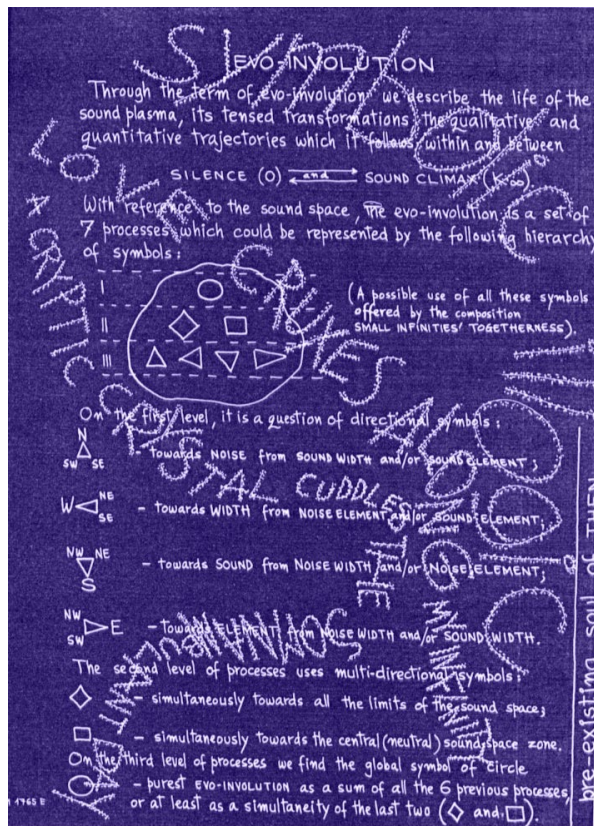 EVO-INVOLUTION
Through the term of evo-involution, we describe the life of the
sound plasma, its tensed transformations, the qualitative and
quantitative trajectories which it follows within and between
SILENCE (O) and SOUND CLIMAX (K∞).
With reference to the sound space, the evo-involution is a set of
7 processes which could be represented by the following hierarchy
of symbols:
I
II
III
(A possible use of all these symbols
offered by the composition
SMALL INFINITIES' TOGETHERNESS).
On the first level, it is a question of directional symbols:
N
SW SE
- towards NOISE from SOUND WIDTH and/or SOUND ELEMENT;
W NE
SE
- towards WIDTH from NOISE ELEMENT and/or SOUND ELEMENT;
NW NE
S
- towards SOUND from NOISE WIDTH and/or NOISE ELEMENT;
NW
SW E
- towards ELEMENT from NOISE WIDTH and/or SOUND WIDTH.
The second level of processes uses multi-directional symbols:
- simultaneously towards all the limits of the sound space;
- simultaneously towards the central (neutral) sound space zone.
On the third level of processes we find the global symbol of circle
- purest EVO-INVOLUTION as a sum of all the 6 previous processes,
or at least as a simultaneity of the last two (◇ and □).
1765 E
pre-existing soul of THEN
A CRYPTIC CRYSTAL CUDDLES THE